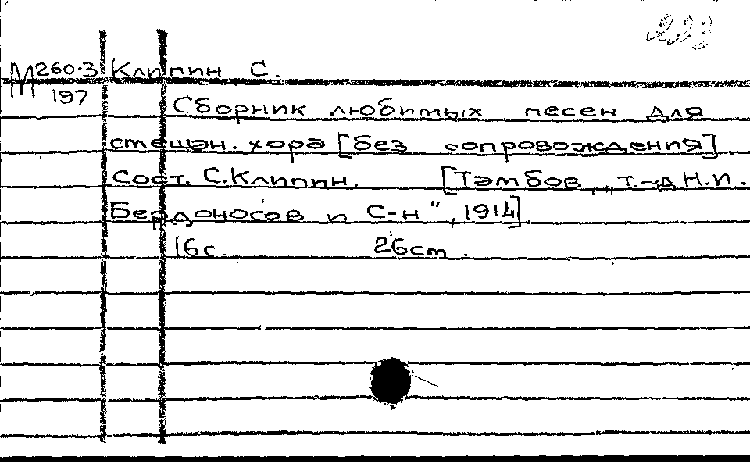 М 260.3 Клипин С.
197
Сборник любимых песен для
смешан. хора [без сопровождения]
Сост. С. Клипин. [Тамбов, „Т-д Н.И.
Бердоносов и С-н", 1914].
16с. 26см.